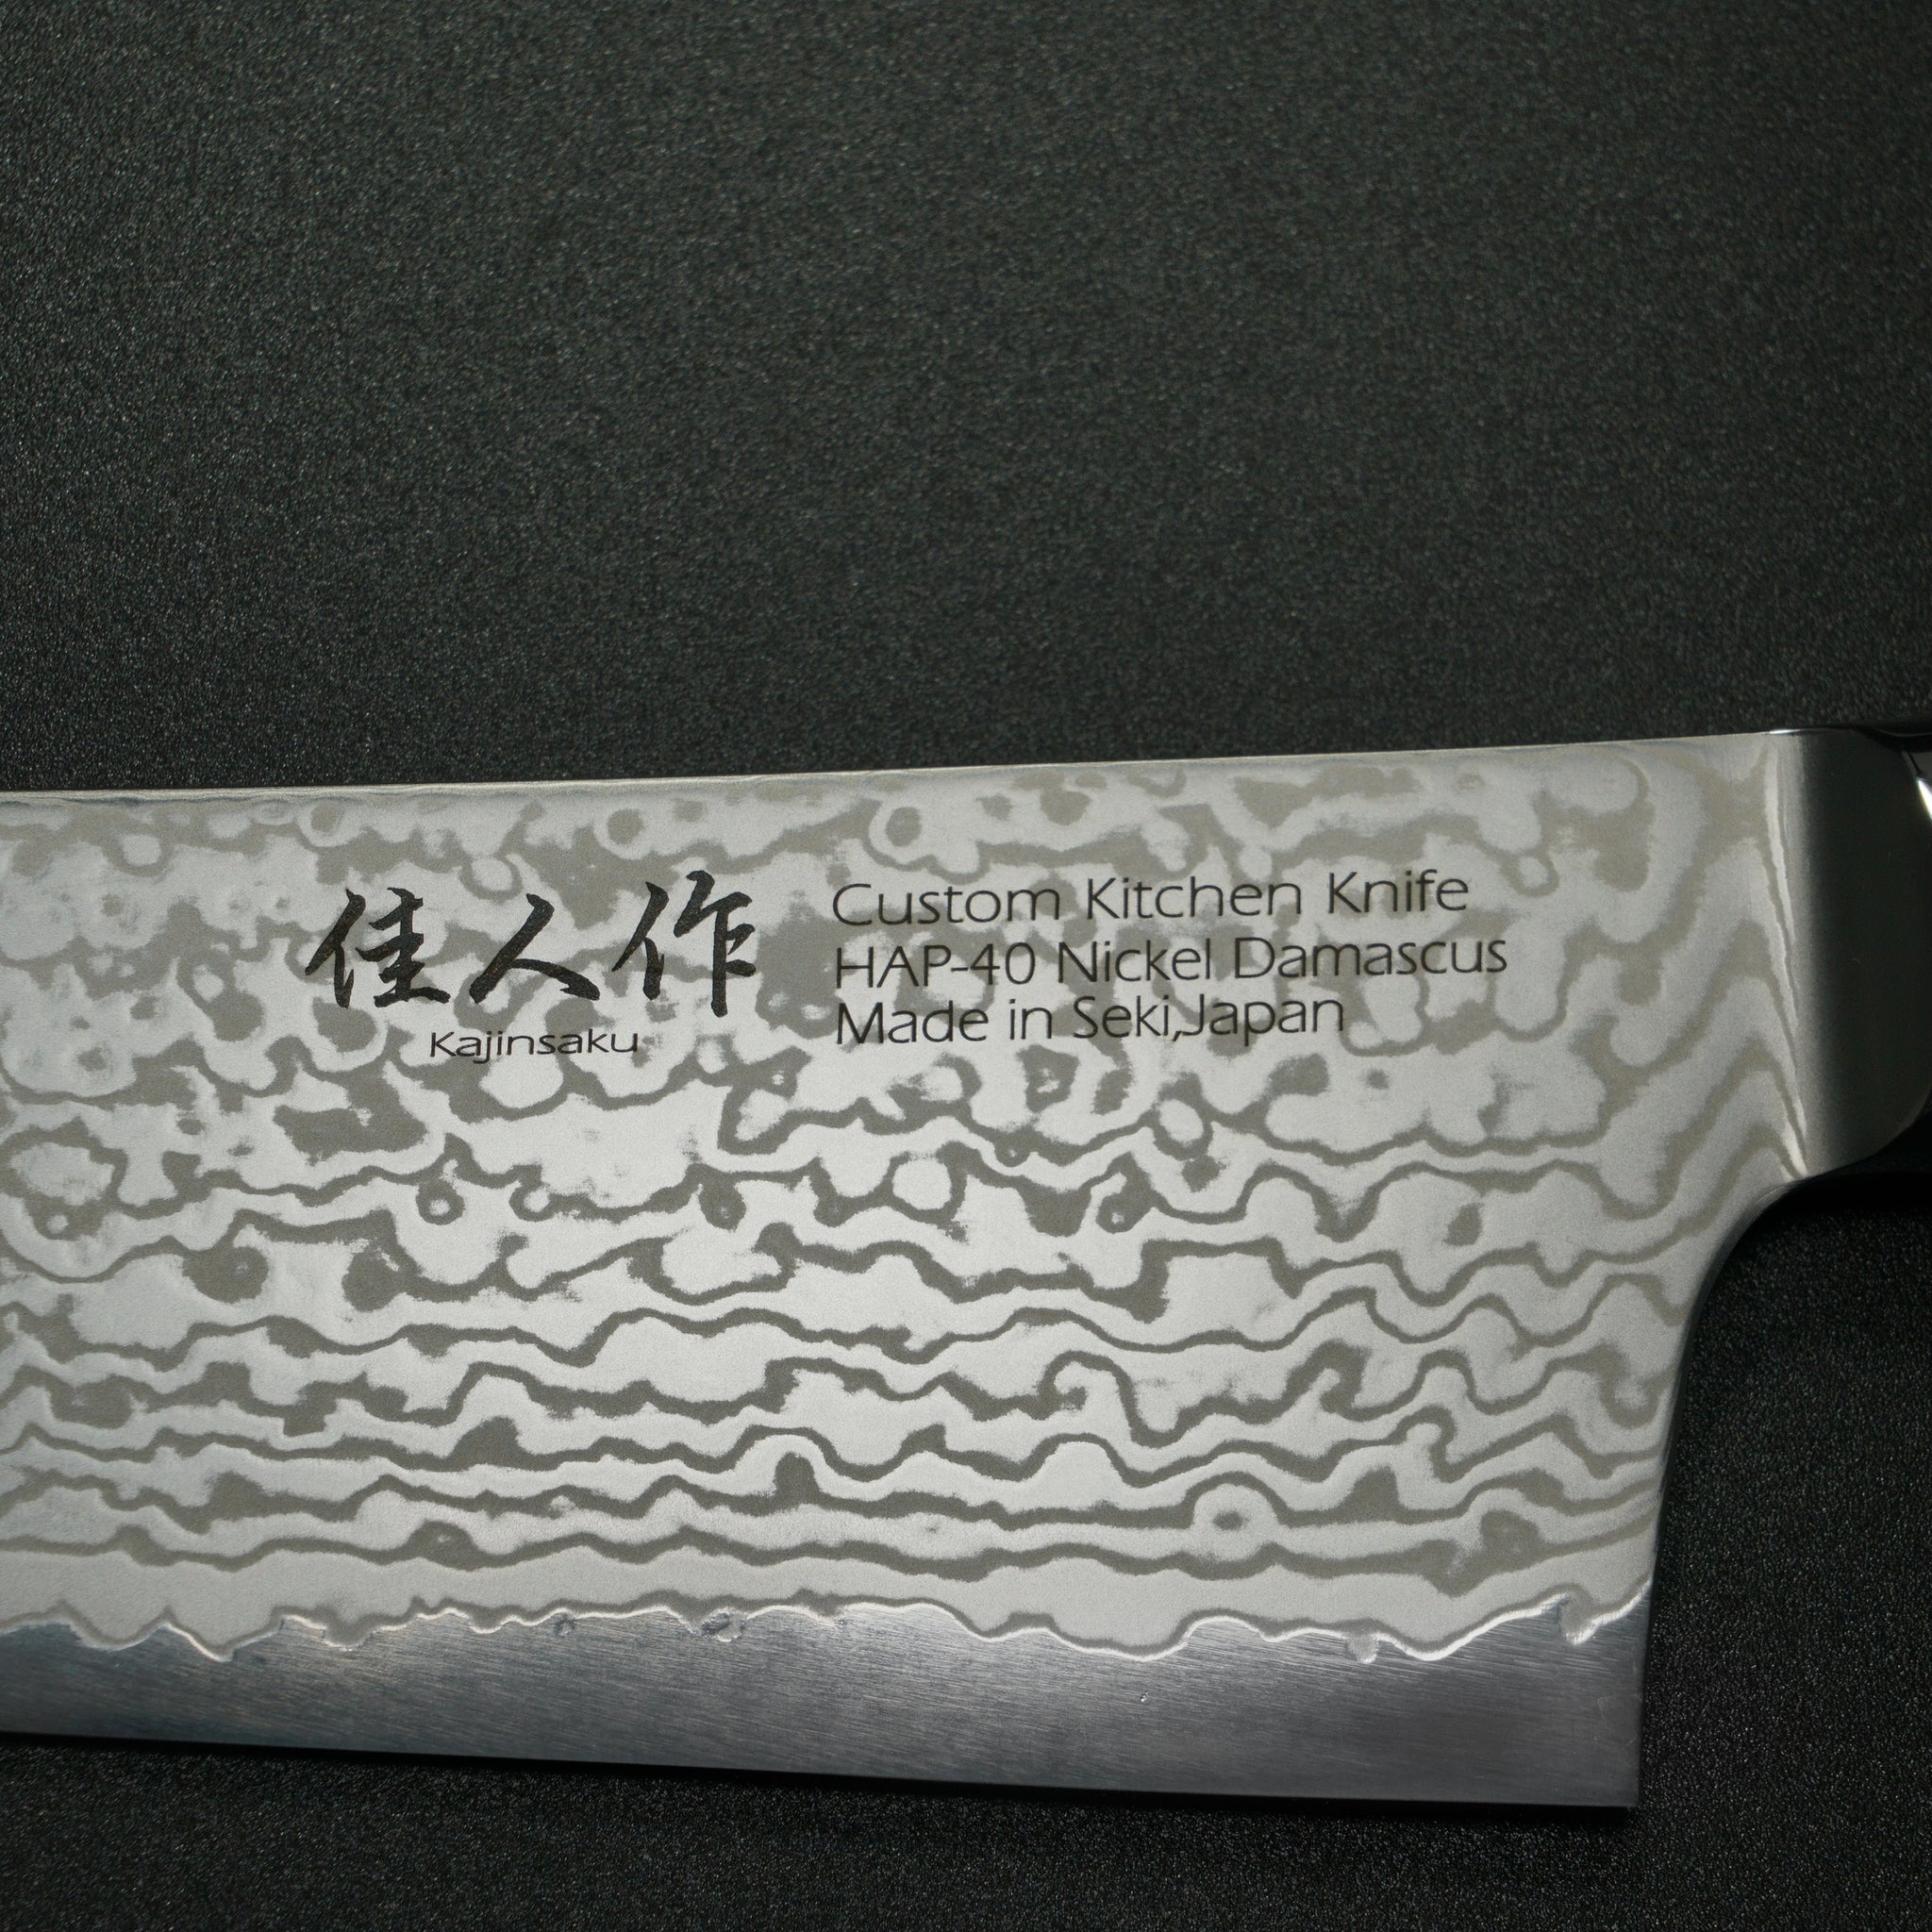 佳人作
Kajinsaku
Custom Kitchen Knife
HAP-40 Nickel Damascus
Made in Seki,Japan